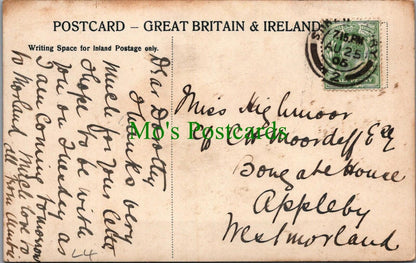 POSTCARD - GREAT BRITAIN & IRELAND
Writing Space for Inland Postage only.
Dear Dorothy
Thanks very
much for your letter
I hope to be with
you on Tuesday as
I am coming tomorrow
to Morland Much love to
all from Aunt
L4
7.15 PM
AU 25
05
2
Miss Highmoor
C/o C H Moordaff Esq
Bongate House
Appleby
Westmorland
Mo's Postcards